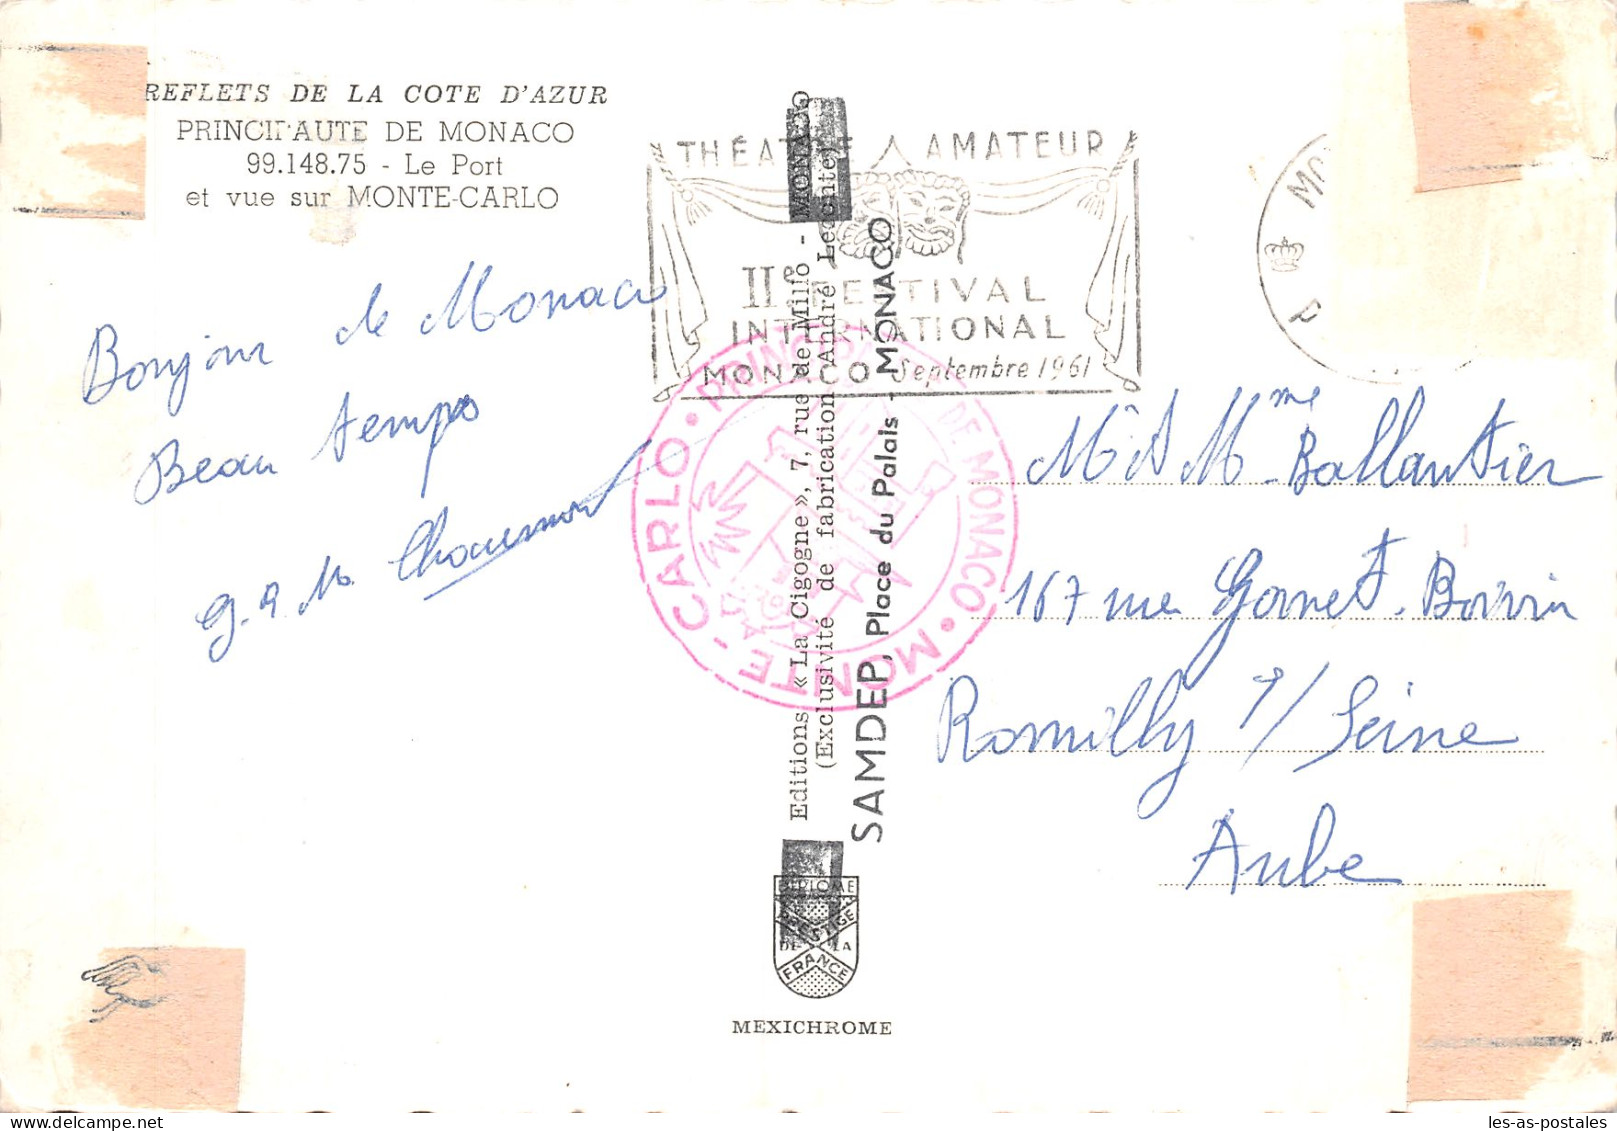 REFLETS DE LA COTE D'AZUR
PRINCIPAUTE DE MONACO
99.148.75 - Le Port
et vue sur MONTE-CARLO
Bonjour de Monaco
Beau temps
g. & M. Chaumont
THÉATRE AMATEUR
IIe FESTIVAL
INTERNATIONAL
MONACO Septembre 1961
MONTE-CARLO • PRINCIPAUTÉ DE MONACO •
Editions « La Cigogne », 7, rue de Millo - MONACO
(Exclusivité de fabrication André Leconte)
SAMDEP, Place du Palais - MONACO
DIPLOME
PRESTIGE
DE LA
FRANCE
MEXICHROME
MO
P
Mr et Mme Ballantier
167 rue Gornet-Boivin
Romilly s/ Seine
Aube
les-as-postales